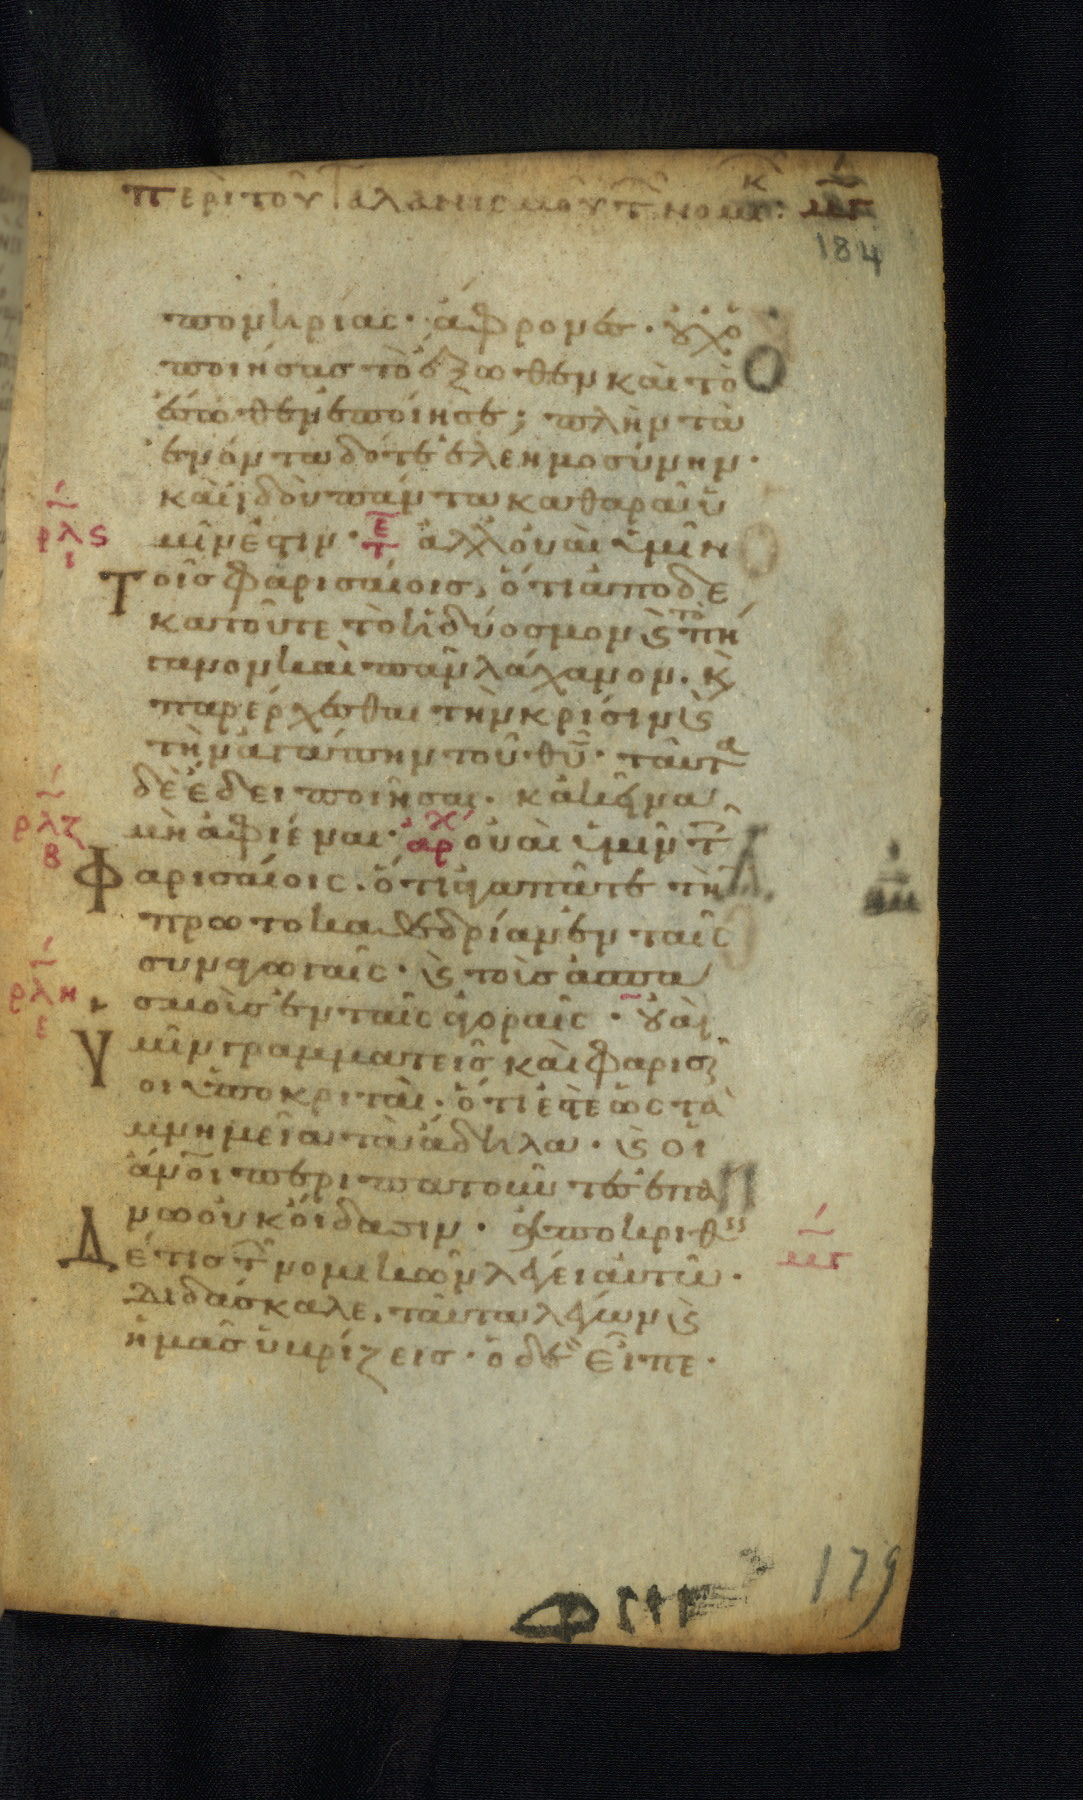 περὶ τοῦ ταλανισμοῦ τ νομικ: μγ
184
πονηρίας· ἄφρονες· οὐχ ὁ
ποιήσας τὸ ἔξωθεν καὶ τὸ
ἔσωθεν ἐποίησε; πλὴν τὰ
ἐνόντα δότε ἐλεημοσύνην·
καὶ ἰδοὺ πάντα καθαρὰ ὑ
μῖν ἐστιν· τε ἀλλ οὐαὶ ὑμῖν
ρλς
ι
τοῖς φαρισαίοις, ὅτι ἀποδε
κατοῦτε τὸ ἡδύοσμον ϛ τὸ πή
γανον καὶ πᾶν λάχανον. κ
παρέρχεσθαι τὴν κρίσιν ϛ
τὴν ἀγάπην τοῦ θυ· ταῦτα
δὲ ἔδει ποιῆσαι. κἀκεῖνα
μὴ ἀφιέναι· ἀρχ οὐαὶ ὑμῖν τ
ρλζ
β
Φαρισαίοις. ὅτι ἀγαπᾶτε τὴ
πρωτοκαθεδρίαν ἐν ταῖς
συναγωγαῖς· ϛ τοὺς ἀσπα
ρλη
ε
σμοὺς ἐν ταῖς ἀγοραῖς· οὐαὶ
Ὑμῖν γραμματεῖς καὶ φαρισ
οι ὑποκριταί. ὅτι ἐστὲ ὡς τὰ
μνημεῖα τὰ ἄδηλα· ϛ οἱ
ἄνοι περιπατοῦντες ἐπά
νω οὐκ οἴδασιν· ἀποκριθεὶς
Δέ τις τ νομικῶν λέγει αὐτῶ·
μγ
Διδάσκαλε, ταῦτα λέγων ϛ
ἡμᾶς ὑβρίζεις· ὁ δὲ εἶπε·
179